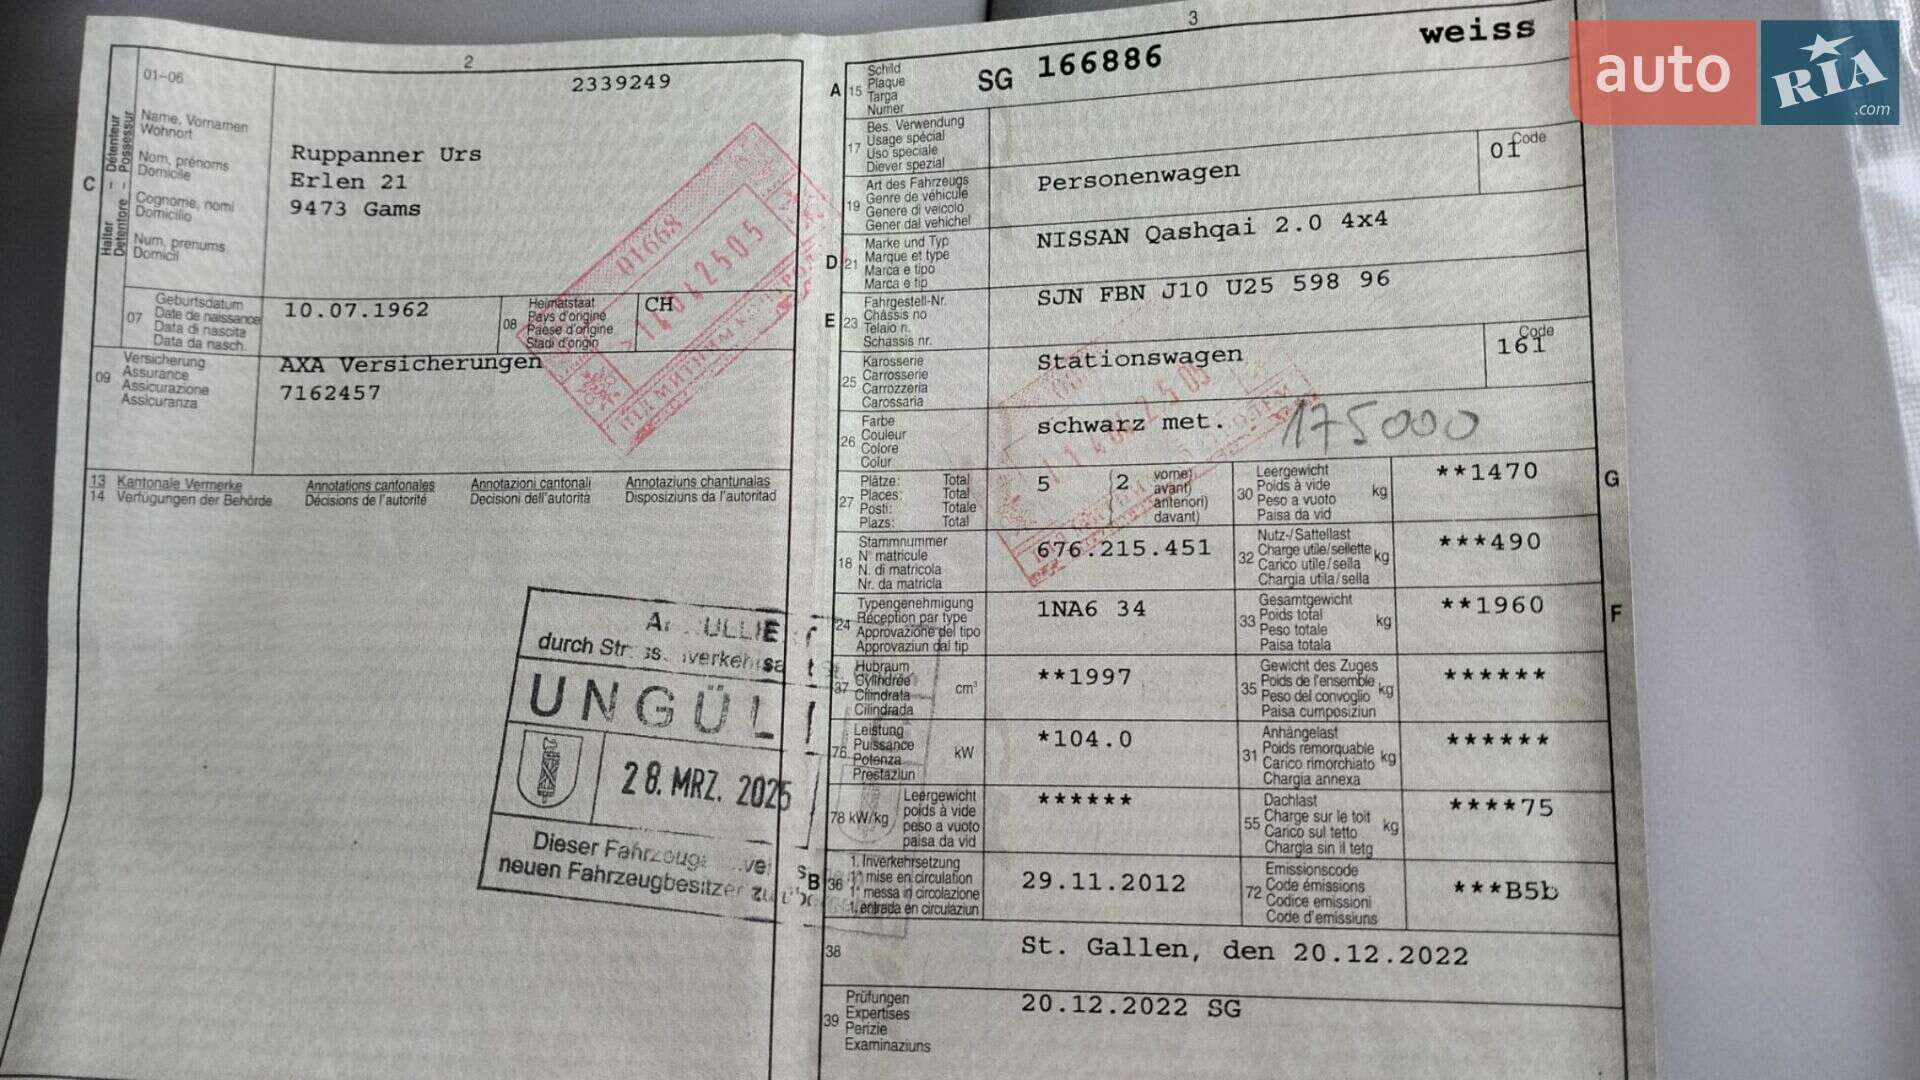 auto
RIA
.com
2
2339249
01–06
Name, Vornamen
Wohnort
Nom, prénoms
Domicile
Cognome, nomi
Domicilio
Num, prenums
Domicil
C
Halter – Détenteur
Detentore – Possessur
Ruppanner Urs
Erlen 21
9473 Gams
07
Geburtsdatum
Date de naissance
Data di nascita
Data da nasch.
10.07.1962
08
Heimatstaat
Pays d'origine
Paese d'origine
Stadi d'origin
CH
09
Versicherung
Assurance
Assicurazione
Assicuranza
AXA Versicherungen
7162457
13 Kantonale Vermerke
Annotations cantonales
Annotazioni cantonali
Annotaziuns chantunalas
14 Verfügungen der Behörde
Décisions de l'autorité
Decisioni dell'autorità
Disposiziuns da l'autoritad
01668
durch
UNGÜL
28. MRZ. 2025
Dieser
neuen Fahrzeugbesitzer
3
A 15
Schild
Plaque
Targa
Numer
SG 166886
weiss
17
Bes. Verwendung
Usage spécial
Uso speciale
Diever spezial
19
Art des Fahrzeugs
Genre de véhicule
Genere di veicolo
Gener dal vehichel
Personenwagen
Code
01
D 21
Marke und Typ
Marque et type
Marca e tipo
Marca e tip
NISSAN Qashqai 2.0 4x4
E 23
Fahrgestell-Nr.
Châssis no
Telaio n.
Schassis nr.
SJN FBN J10 U25 598 96
25
Karosserie
Carrosserie
Carrozzeria
Carossaria
Stationswagen
Code
161
26
Farbe
Couleur
Colore
Colur
schwarz met.
175000
27
Plätze: Total
Places: Total
Posti: Totale
Plazs: Total
5 (2
vorne)
avant)
anteriori)
davant)
30
Leergewicht
Poids à vide
Peso a vuoto
Paisa da vid
kg
**1470
G
18
Stammnummer
N° matricule
N. di matricola
Nr. da matricla
676.215.451
32
Nutz-/Sattellast
Charge utile/sellette
Carico utile/sella
Chargia utila/sella
kg
***490
24
Typengenehmigung
Réception par type
Approvazione del tipo
Approvaziun dal tip
1NA6 34
33
Gesamtgewicht
Poids total
Peso totale
Paisa totala
kg
**1960
F
37
Hubraum
Cylindrée
Cilindrata
Cilindrada
cm³
**1997
35
Gewicht des Zuges
Poids de l'ensemble
Peso del convoglio
Paisa cumposiziun
kg
******
76
Leistung
Puissance
Potenza
Prestaziun
kW
*104.0
31
Anhängelast
Poids remorquable
Carico rimorchiato
Chargia annexa
kg
******
78 kW/kg
Leergewicht
poids à vide
peso a vuoto
paisa da vid
******
55
Dachlast
Charge sur le toit
Carico sul tetto
Chargia sin il tetg
kg
****75
B 36
1. Inverkehrsetzung
1re mise en circulation
1a messa in circolazione
1. entrada en circulaziun
29.11.2012
72
Emissionscode
Code émissions
Codice emissioni
Code d'emissiuns
***B5b
38
St. Gallen, den 20.12.2022
39
Prüfungen
Expertises
Perizie
Examinaziuns
20.12.2022 SG